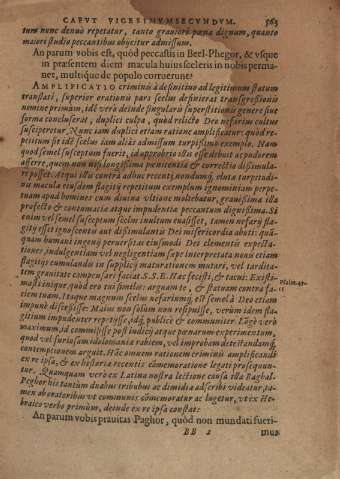 CAPVT VIGESIMVMSECVNDVM. 563
tum nunc denuò repetatur, tanto grauiori pœna dignum, quanto
maiore studio peccantibus obijcitur admissum.
An parum vobis est, quòd peccastis in Beel-Phegor, & vsque
in præsentem diem macula huius sceleris in nobis perma-
net, multique de populo corruerunt?
AMPLIFICATIO criminis à definitiuo ad legitimum statum
translati, superior orationis pars scelus definierat transgressionis
nomine primùm, idę́ verò deinde singulari superstitionis genere siue
forma concluserat, duplici culpa, quòd relicto Deo nefarius cultus
susciperetur. Nunc iam duplici etiam ratione amplificatur: quòd re-
petitum sit idę́ scelus iam aliàs admissum turpissimo exemplo. Nam
quod semel susceptum fuerit, id opprobrio illis esse debuit ac pudorem
afferre, quem non nisi longissima pœnitentia & correctio dissimula-
re posset. Atqui illa contrà adhuc recenti, nondumq́; eluta turpitudi-
nis macula eiusdem flagitij repetitum exemplum ignominiam perpe-
tuam apud homines cum diuina vltione molitebatur, grauissima illa
profectò & contumacia atque impudentia peccantium dignissima. Si
enim vel semel susceptum scelus inultum euasisset, tamen nefarij fla-
gitij esset ignoscentis aut dissimulantis Dei misericordia abuti: quā-
quam humani ingenij peruersitas eiusmodi Dei clementis expecta-
tionem, indulgentiam vel negligentiam sæpe interpretata nouis etiam
flagitijs cumulandis in supplicij maturationem mutari, vel tardita-
tem grauitate compensari faciat. S.S.E. Hæc fecisti, & tacui: Existi-
masti inique quòd ero tui similis: arguam te, & statuam contra fa-
ciem tuam. Itaque magnum scelus nefariumq́; est semel à Deo etiam
impunè discessisse: Maius non solùm non resipuisse, verùm idem fla-
gitium impudenter repetisse, idq́; publicè & communiter. Lōgè verò
maximum, id commisisse post indicij atque pœnarum experimentum,
quod vel furiosam idolomaniæ rabiem, vel improbam detestandamq́;
contemptionem arguit. Hāc omnem rationem criminis amplificandi
ex re ipsa, & ex historia recentis cōmemoratione legati prosequun-
tur. Quamquam verò ex Latina nostra lectione causa illa Baghal-
Peghor his tantùm duabus tribubus ac dimidia adscribi videatur, ta-
men ab oratoribus vt communis cōmemoratur ac lugetur, vt ex He-
braico verbo primùm, deinde ex re ipsa constat:
An parum vobis prauitas Paghor, quòd non mundati sueri-
BB 2 mus
Psalm.49.